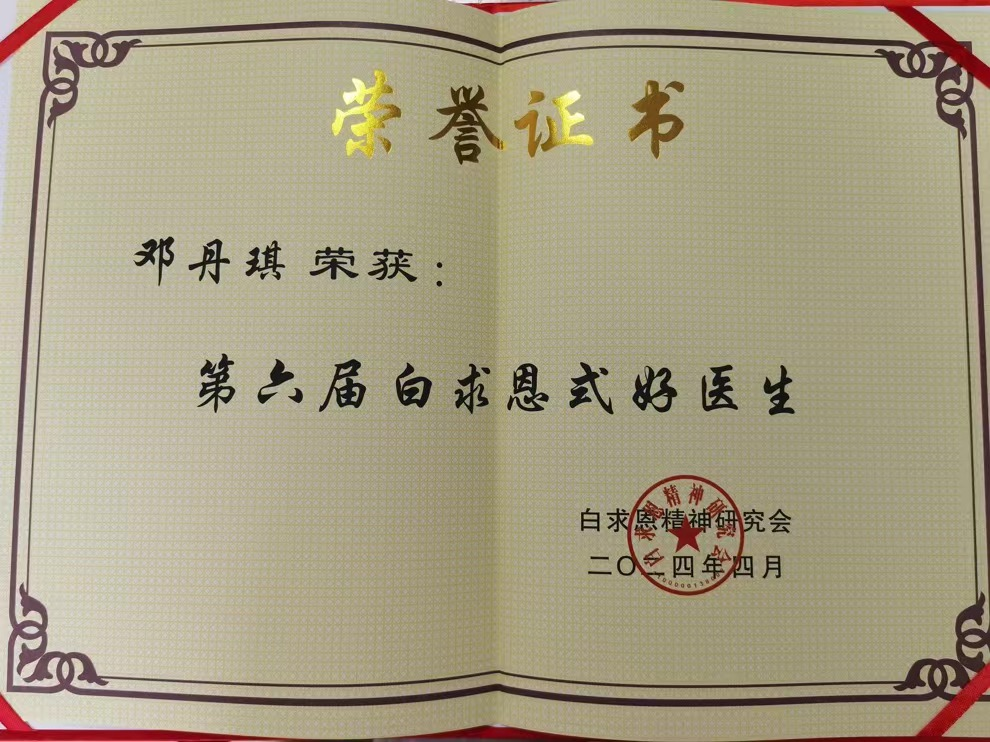 荣誉证书
邓丹琪 荣获：
第六届白求恩式好医生
白求恩精神研究会
二〇二四年四月
白求恩精神研究会